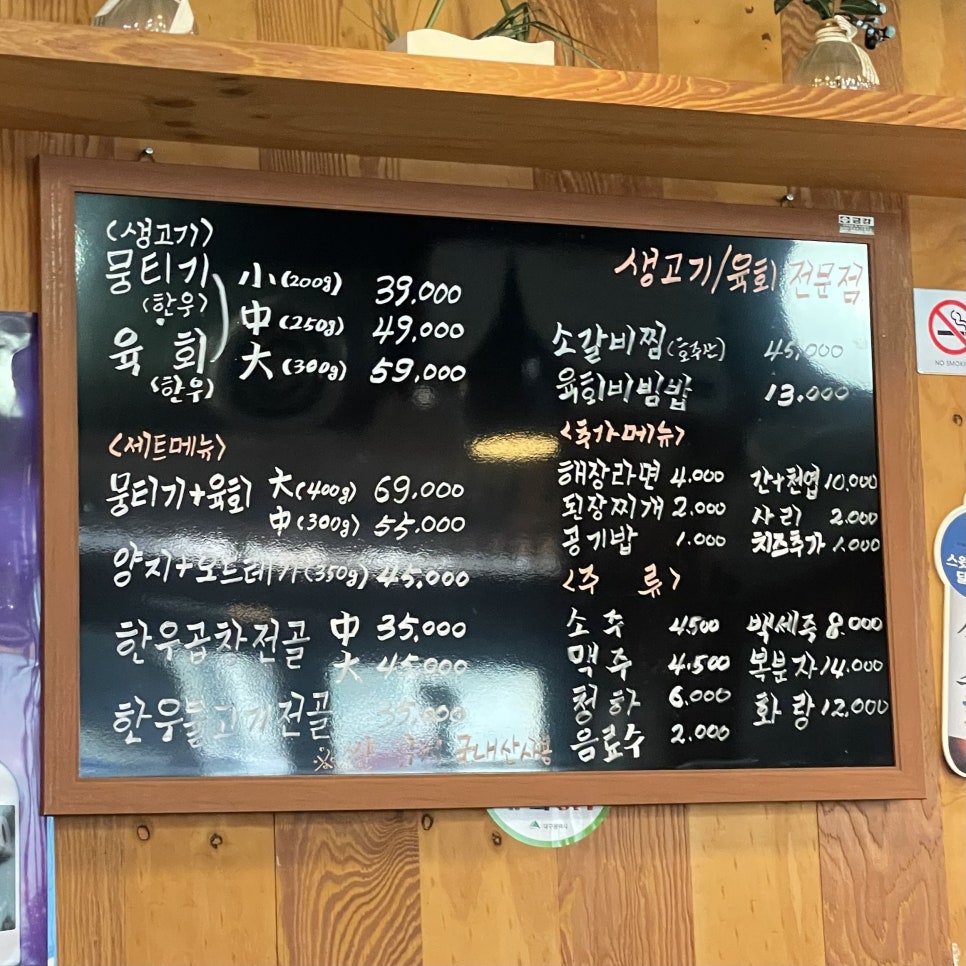 <생고기>
뭉티기
(한우)
육회
(한우)
小(200g) 39,000
中(250g) 49,000
大(300g) 59,000
<세트메뉴>
뭉티기+육회 大(400g) 69,000
中(300g) 55,000
양지+오드레기(350g) 45,000
한우곱창전골 中 35,000
大 45,000
한우불고기전골
국내산사용
생고기/육회 전문점
소갈비찜 45,000
육회비빔밥 13,000
<추가메뉴>
해장라면 4,000 간+천엽 10,000
된장찌개 2,000 사리 2,000
공기밥 1,000 치즈추가 1,000
<주 류>
소주 4,500 백세주 8,000
맥주 4,500 복분자 14,000
청하 6,000 화랑 12,000
음료수 2,000
금강